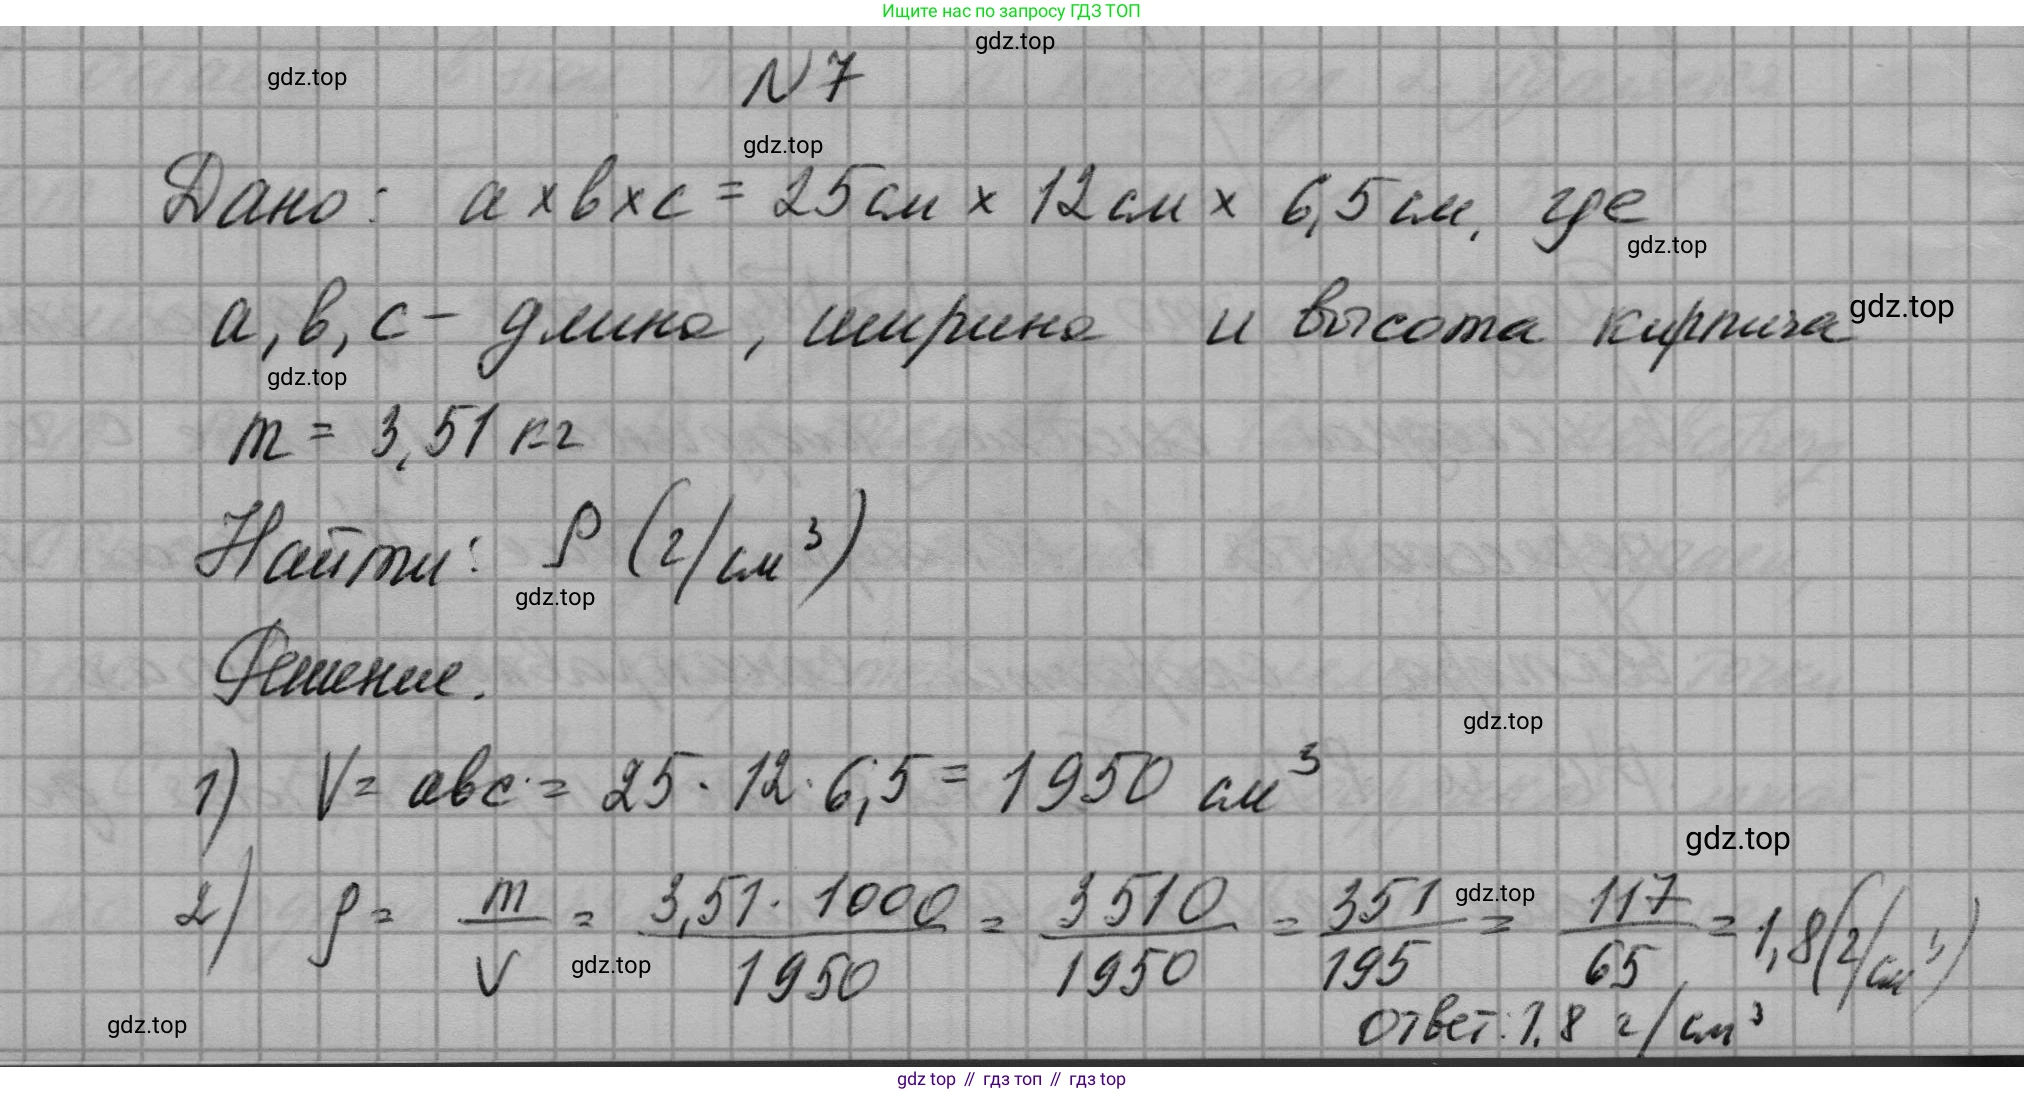 Ищите нас по запросу ГДЗ ТОП
gdz.top
gdz.top
N 7
gdz.top
Дано: a x b x c = 25 см x 12 см x 6,5 см, где
gdz.top
a, b, c - длина, ширина и высота кирпича
gdz.top
gdz.top
m = 3,51 кг
Найти: ρ (г/см³)
gdz.top
Решение.
gdz.top
1) V = abc = 25 · 12 · 6,5 = 1950 см³
gdz.top
2) ρ = m/V = 3,51 · 1000/1950 = 3510/1950 = 351/195 = 117/65 = 1,8 (г/см³)
gdz.top
gdz.top
Ответ: 1,8 г/см³
gdz.top
gdz top // гдз топ // гдз top